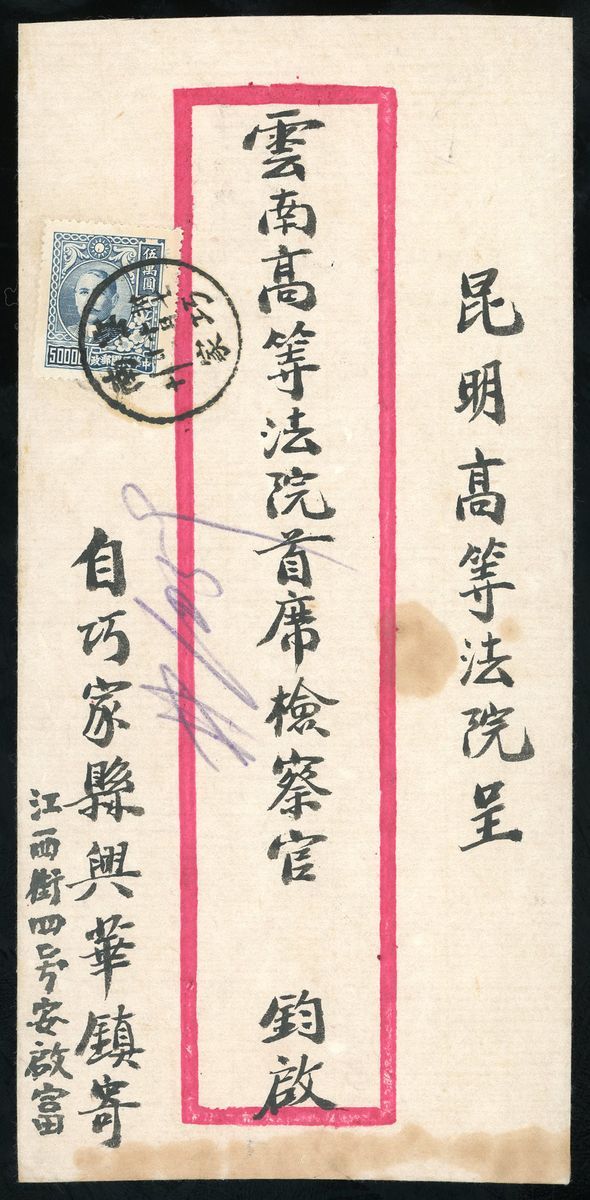 昆明高等法院呈
雲南高等法院首席檢察官 鈞啟
自巧家縣興華鎮寄
江西街四号安啟富
伍萬圓
50000
巧家
雲南